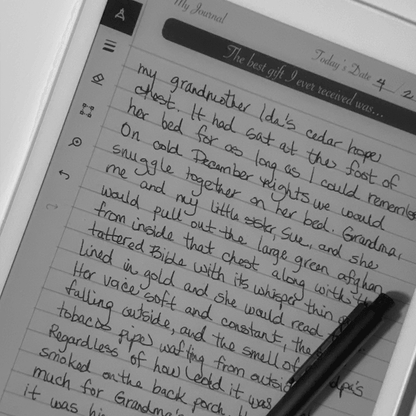 A
My Journal
Today's Date 4 / 2
The best gift I ever received was...
my grandmother Ida's cedar hope
chest. It had sat at the foot of
her bed for as long as I could remember
On cold December nights we would
snuggle together on her bed. Grandma,
me and my little sister, Sue, and she
would pull out the large green afghan
from inside that chest along with th
tattered Bible with its whisper thin
lined in gold and she would read
Her voice soft and constant, the
falling outside, and the smell of dpa's
tobacco pipe wafting from outsid
Regardless of how cold it was
smoked on the back porch. I
much for Grandma's
it was hi